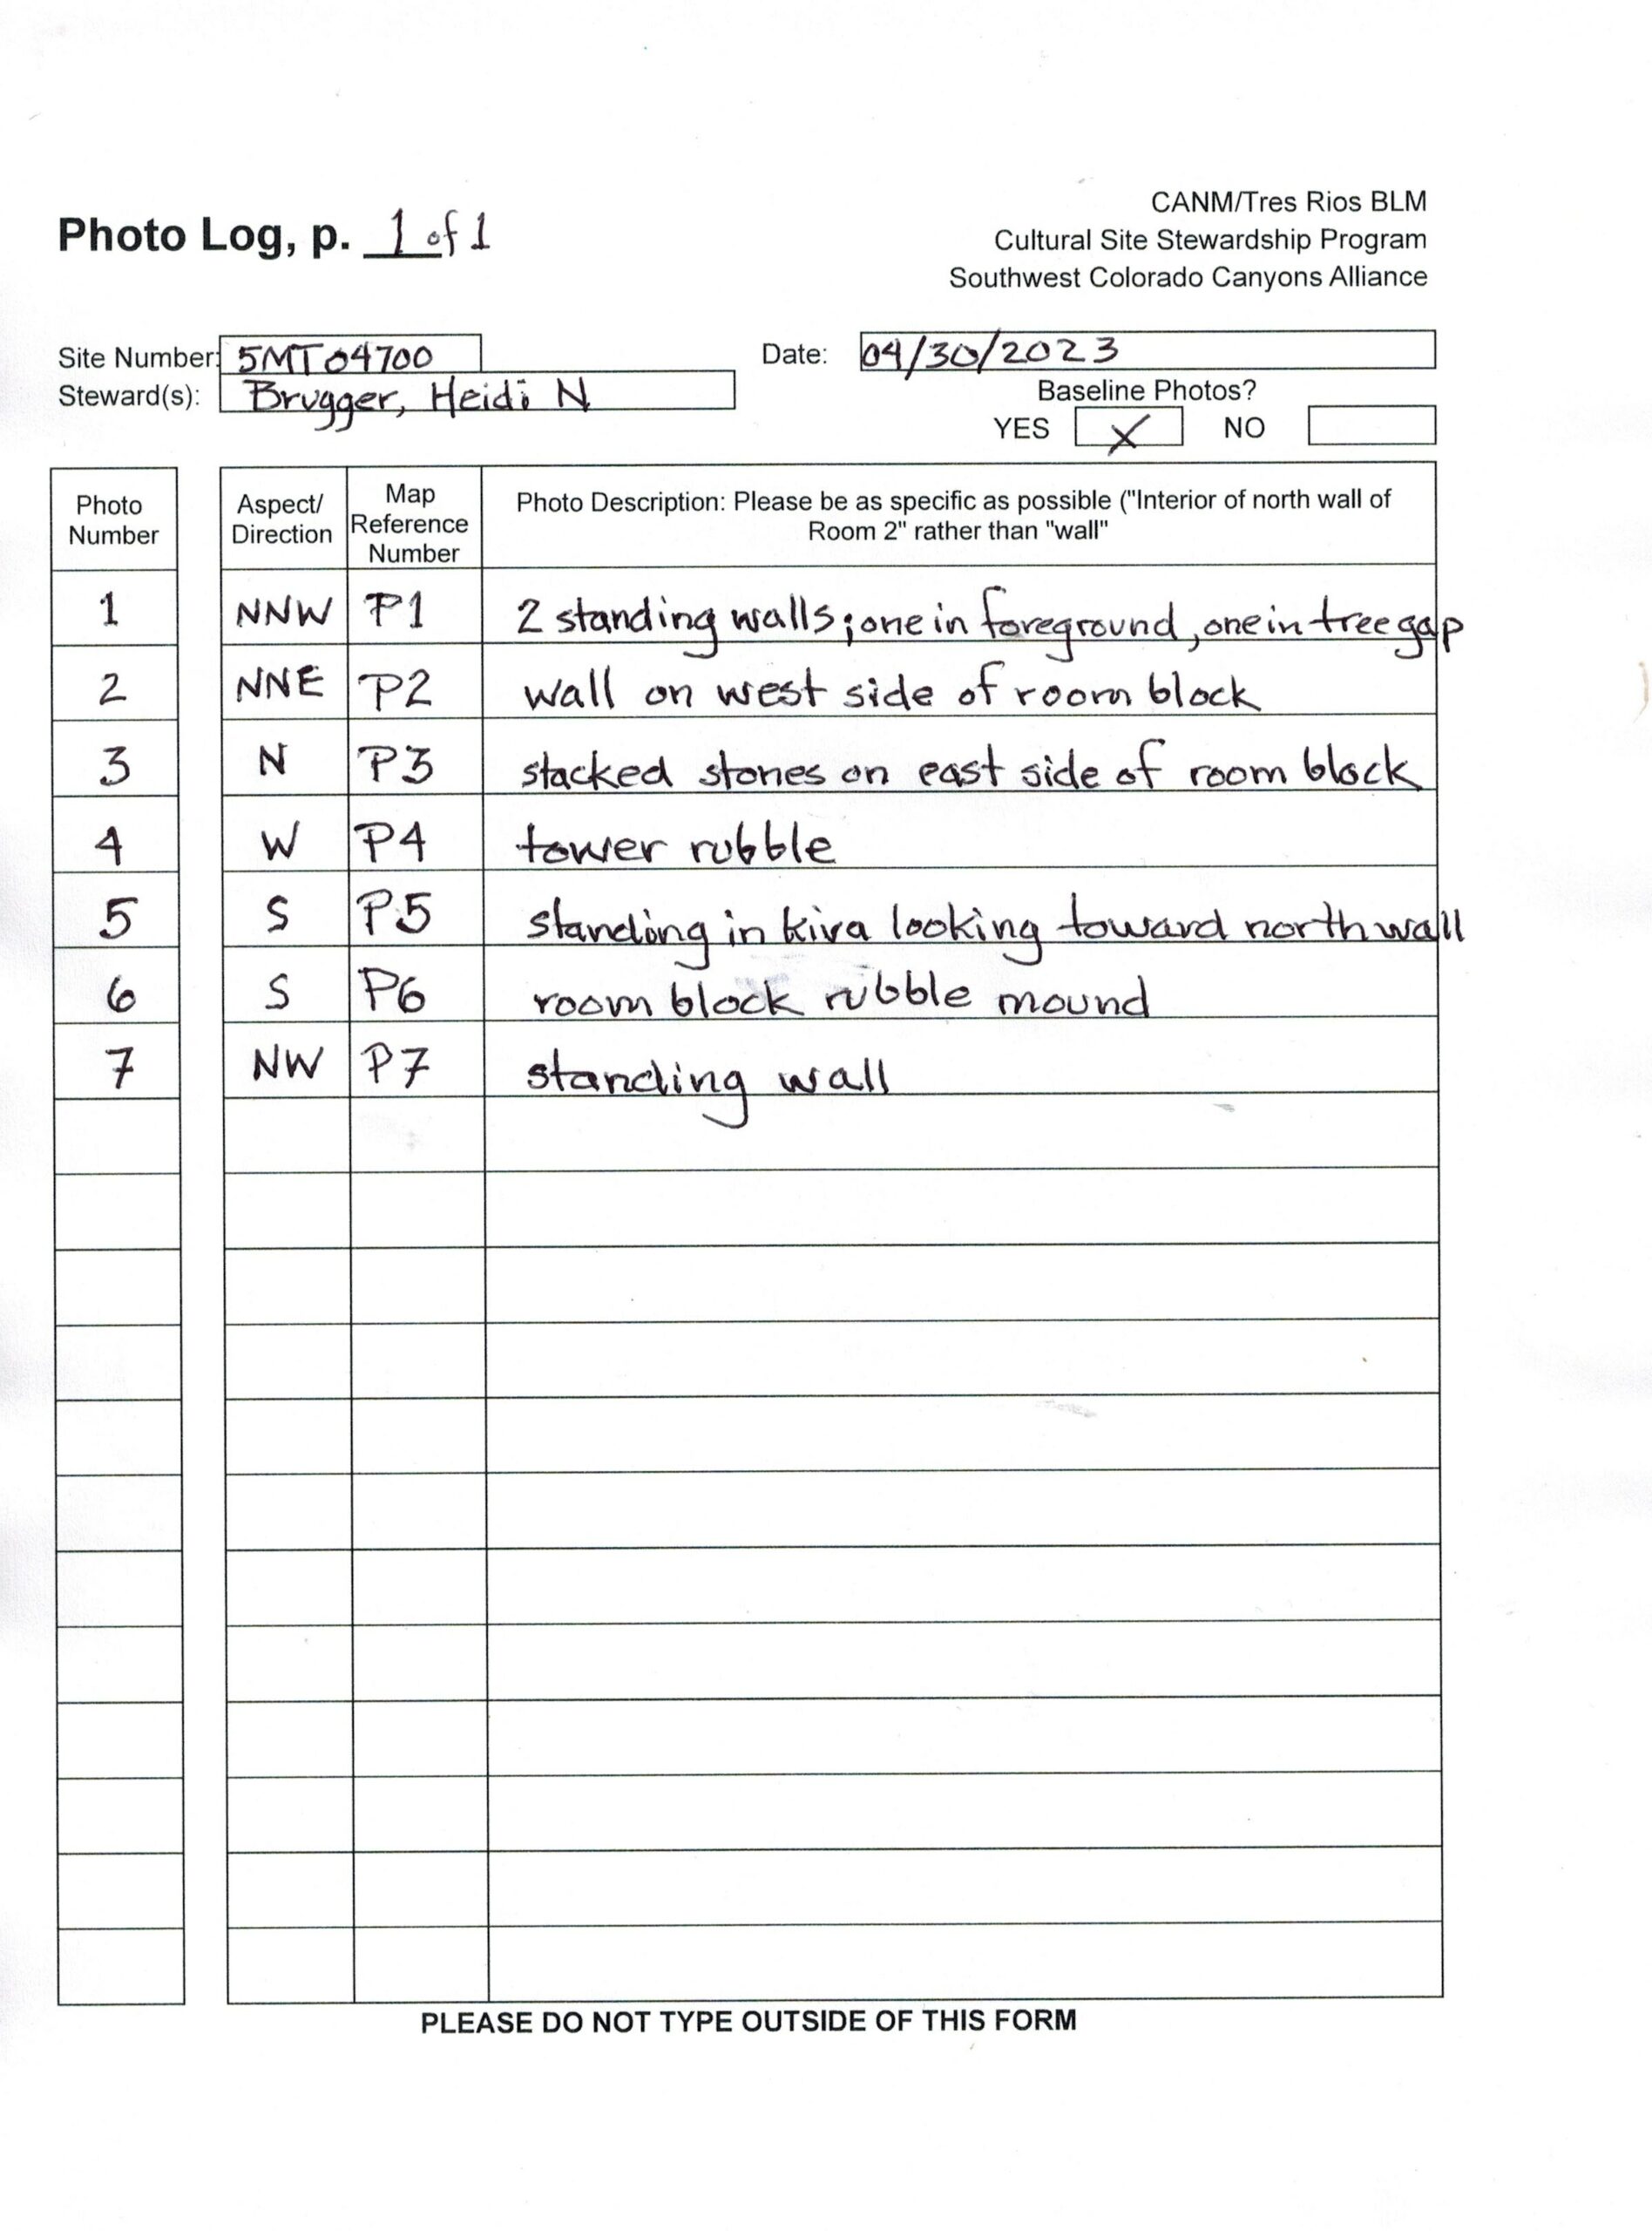 CANM/Tres Rios BLM
Photo Log, p. 1 of 1
Cultural Site Stewardship Program
Southwest Colorado Canyons Alliance
Site Number: 5MT04700 Date: 04/30/2023
Steward(s): Brugger, Heidi N
Baseline Photos?
YES X NO
Photo Number
Aspect/ Direction
Map Reference Number
Photo Description: Please be as specific as possible ("Interior of north wall of
Room 2" rather than "wall"
1 NNW P1 2 standing walls; one in foreground, one in tree gap
2 NNE P2 wall on west side of room block
3 N P3 stacked stones on east side of room block
4 W P4 tower rubble
5 S P5 standing in kiva looking toward north wall
6 S P6 room block rubble mound
7 NW P7 standing wall
PLEASE DO NOT TYPE OUTSIDE OF THIS FORM